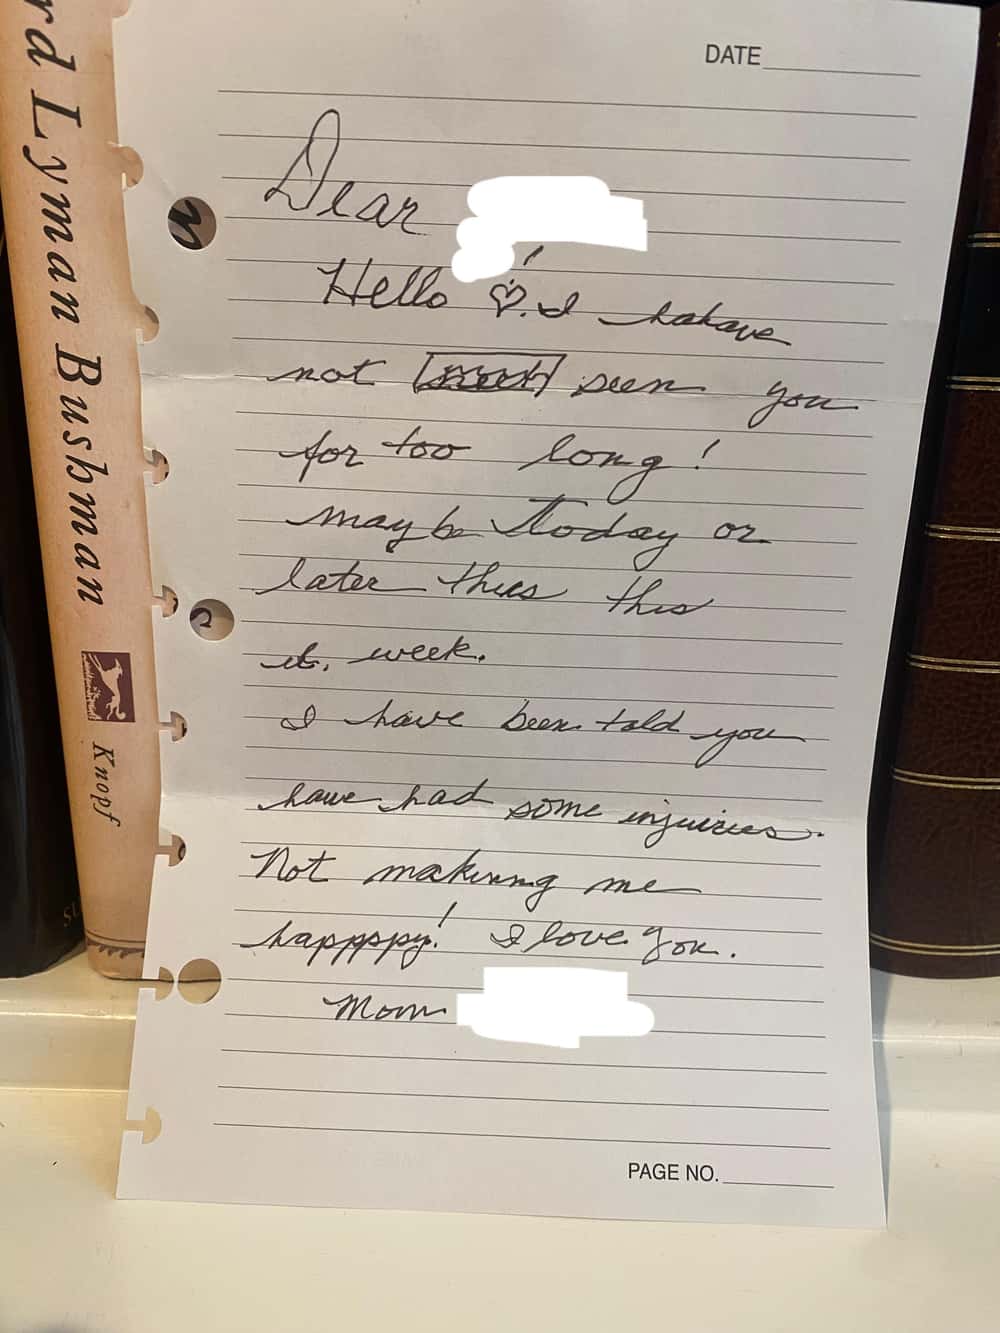 rd Lyman Bushman
Knopf
DATE
Dear
Hello ♡! I hahave
not seen you
for too long!
maybe Today or
later thies this
week.
I have been told you
have had some injuiries.
Not makinng me
happppy! I love you.
Mom
PAGE NO.